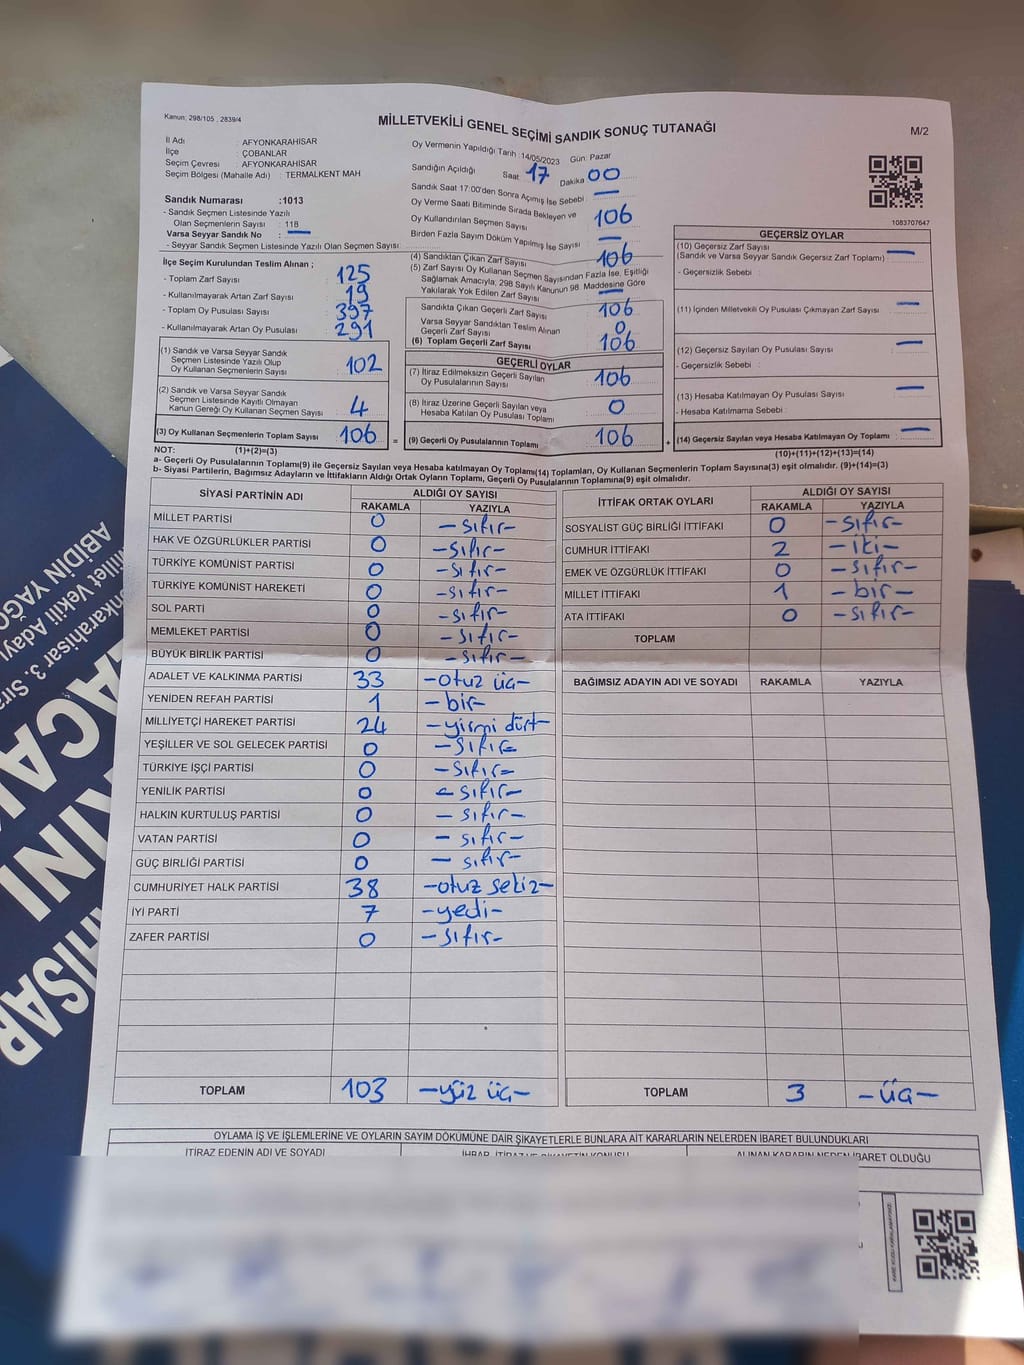 Kanun; 298/105 , 2839/4
MİLLETVEKİLİ GENEL SEÇİMİ SANDIK SONUÇ TUTANAĞI
M/2
İl Adı : AFYONKARAHİSAR
İlçe : ÇOBANLAR
Seçim Çevresi : AFYONKARAHİSAR
Seçim Bölgesi (Mahalle Adı) : TERMALKENT MAH
Sandık Numarası :1013
- Sandık Seçmen Listesinde Yazılı
Olan Seçmenlerin Sayısı : 118
Varsa Seyyar Sandık No : —
- Seyyar Sandık Seçmen Listesinde Yazılı Olan Seçmen Sayısı:
Oy Vermenin Yapıldığı Tarih :14/05/2023 Gün: Pazar
Sandığın Açıldığı Saat 17 Dakika 00
Sandık Saat 17:00'den Sonra Açımış İse Sebebi —
Oy Verme Saati Bitiminde Sırada Bekleyen ve
Oy Kullandırılan Seçmen Sayısı 106
Birden Fazla Sayım Döküm Yapılmış İse Sayısı —
1083707647
İlçe Seçim Kurulundan Teslim Alınan ;
- Toplam Zarf Sayısı 125
- Kullanılmayarak Artan Zarf Sayısı 19
- Toplam Oy Pusulası Sayısı 397
- Kullanılmayarak Artan Oy Pusulası 291
(1) Sandık ve Varsa Seyyar Sandık
Seçmen Listesinde Yazılı Olup
Oy Kullanan Seçmenlerin Sayısı 102
(2) Sandık ve Varsa Seyyar Sandık
Seçmen Listesinde Kayıtlı Olmayan
Kanun Gereği Oy Kullanan Seçmen Sayısı 4
(3) Oy Kullanan Seçmenlerin Toplam Sayısı 106 =
(4) Sandıktan Çıkan Zarf Sayısı 106
(5) Zarf Sayısı Oy Kullanan Seçmen Sayısından Fazla İse, Eşitliği
Sağlamak Amacıyla, 298 Sayılı Kanunun 98. Maddesine Göre
Yakılarak Yok Edilen Zarf Sayısı —
Sandıkta Çıkan Geçerli Zarf Sayısı 106
Varsa Seyyar Sandıktan Teslim Alınan
Geçerli Zarf Sayısı 0
(6) Toplam Geçerli Zarf Sayısı 106
GEÇERLİ OYLAR
(7) İtiraz Edilmeksizin Geçerli Sayılan
Oy Pusulalarının Sayısı 106
(8) İtiraz Üzerine Geçerli Sayılan veya
Hesaba Katılan Oy Pusulası Toplamı 0
(9) Geçerli Oy Pusulalarının Toplamı 106 +
GEÇERSİZ OYLAR
(10) Geçersiz Zarf Sayısı
(Sandık ve Varsa Seyyar Sandık Geçersiz Zarf Toplamı) —
- Geçersizlik Sebebi :
(11) İçinden Milletvekili Oy Pusulası Çıkmayan Zarf Sayısı —
(12) Geçersiz Sayılan Oy Pusulası Sayısı —
- Geçersizlik Sebebi :
(13) Hesaba Katılmayan Oy Pusulası Sayısı —
- Hesaba Katılmama Sebebi :
(14) Geçersiz Sayılan veya Hesaba Katılmayan Oy Toplamı —
NOT: (1)+(2)=(3) (10)+(11)+(12)+(13)=(14)
a- Geçerli Oy Pusulalarının Toplamı(9) ile Geçersiz Sayılan veya Hesaba katılmayan Oy Toplamı(14) Toplamları, Oy Kullanan Seçmenlerin Toplam Sayısına(3) eşit olmalıdır. (9)+(14)=(3)
b- Siyasi Partilerin, Bağımsız Adayların ve İttifakların Aldığı Ortak Oyların Toplamı, Geçerli Oy Pusulalarının Toplamına(9) eşit olmalıdır.
SİYASİ PARTİNİN ADI ALDIĞI OY SAYISI
RAKAMLA YAZIYLA
MİLLET PARTİSİ 0 —sıfır—
HAK VE ÖZGÜRLÜKLER PARTİSİ 0 —sıfır—
TÜRKİYE KOMÜNİST PARTİSİ 0 —sıfır—
TÜRKİYE KOMÜNİST HAREKETİ 0 —sıfır—
SOL PARTİ 0 —sıfır—
MEMLEKET PARTİSİ 0 —sıfır—
BÜYÜK BİRLİK PARTİSİ 0 —sıfır—
ADALET VE KALKINMA PARTİSİ 33 —otuz üç—
YENİDEN REFAH PARTİSİ 1 —bir—
MİLLİYETÇİ HAREKET PARTİSİ 24 —yirmi dört—
YEŞİLLER VE SOL GELECEK PARTİSİ 0 —sıfır—
TÜRKİYE İŞÇİ PARTİSİ 0 —sıfır—
YENİLİK PARTİSİ 0 —sıfır—
HALKIN KURTULUŞ PARTİSİ 0 —sıfır—
VATAN PARTİSİ 0 —sıfır—
GÜÇ BİRLİĞİ PARTİSİ 0 —sıfır—
CUMHURİYET HALK PARTİSİ 38 —otuz sekiz—
İYİ PARTİ 7 —yedi—
ZAFER PARTİSİ 0 —sıfır—
TOPLAM 103 —yüz üç—
İTTİFAK ORTAK OYLARI ALDIĞI OY SAYISI
RAKAMLA YAZIYLA
SOSYALİST GÜÇ BİRLİĞİ İTTİFAKI 0 —sıfır—
CUMHUR İTTİFAKI 2 —iki—
EMEK VE ÖZGÜRLÜK İTTİFAKI 0 —sıfır—
MİLLET İTTİFAKI 1 —bir—
ATA İTTİFAKI 0 —sıfır—
TOPLAM
BAĞIMSIZ ADAYIN ADI VE SOYADI RAKAMLA YAZIYLA
TOPLAM 3 —üç—
OYLAMA İŞ VE İŞLEMLERİNE VE OYLARIN SAYIM DÖKÜMÜNE DAİR ŞİKAYETLERLE BUNLARA AİT KARARLARIN NELERDEN İBARET BULUNDUKLARI
İTİRAZ EDENİN ADI VE SOYADI İHBAR, İTİRAZ VE ŞİKAYETİN KONUSU ALINAN KARARIN NEDEN İBARET OLDUĞU
ABİDİN YAĞC
Millet Vekili Adayı
onkarahisar 3. Sıra